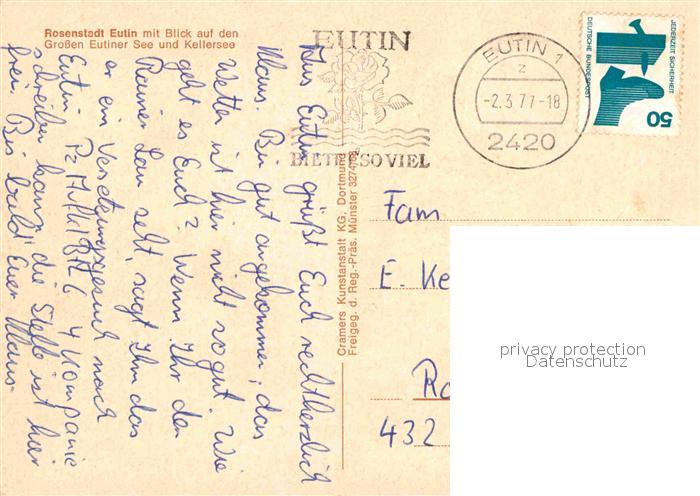 Rosenstadt Eutin mit Blick auf den
Großen Eutiner See und Kellersee
EUTIN
BIETET SO VIEL
EUTIN 1
z
-2.3.77-18
2420
DEUTSCHE BUNDESPOST
JEDERZEIT SICHERHEIT
50
Aus Eutin grüßt Euch rechtherzlich
Klaus. Bin gut angekommen, das
Wetter ist hier nicht so gut. Wie
geht es Euch? Wenn Ihr den
Rainer Lau seht, sagt Ihm das
er ein Versetzungsgesuch nach
Eutin 4 Kompanie
schreiben kann, die Stelle ist hier
frei. Bis bald Euer Klaus-
Cramers Kunstanstalt KG, Dortmund
Freigeg. d. Reg.-Präs. Münster
Fam
E. Ke
Ra
432
privacy protection
Datenschutz